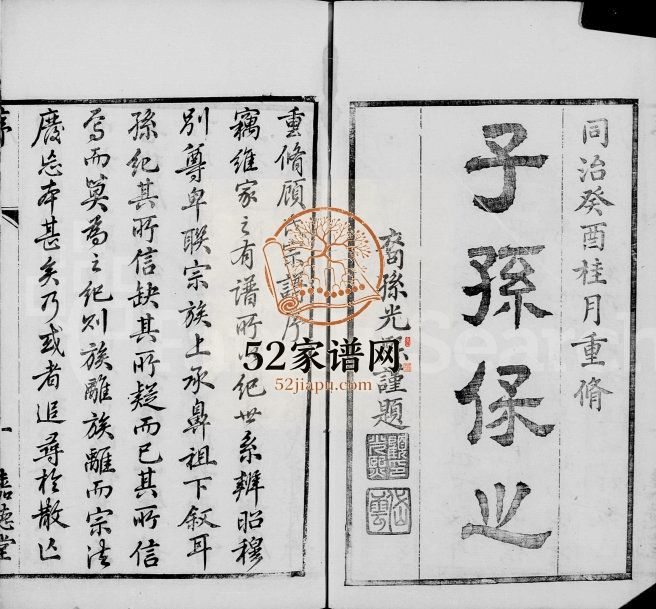 同治癸酉桂月重脩
子孫保之
裔孫光熙謹題
重脩顧氏宗譜序
竊維家之有譜所以紀世系辨昭穆
別尊卑聯宗族上承鼻祖下敘耳
孫紀其所信缺其所疑而已其所信
焉而莫為之紀則族離族離而宗法
廢忘本甚矣乃或者追尋於散亡
序
一
嘉德堂
52家谱网
52jiapu.com
Search